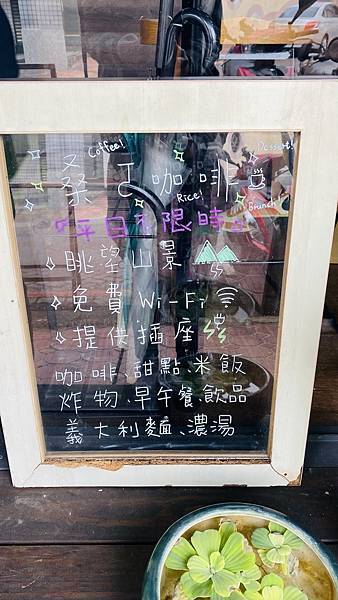 Coffee!
Dessert!
桑㠪咖啡
Rice!
Brunch
『平日不限時』
眺望山景
免費Wi-Fi
提供插座
咖啡、甜點、米飯
炸物、早午餐、飲品
義大利麵、濃湯